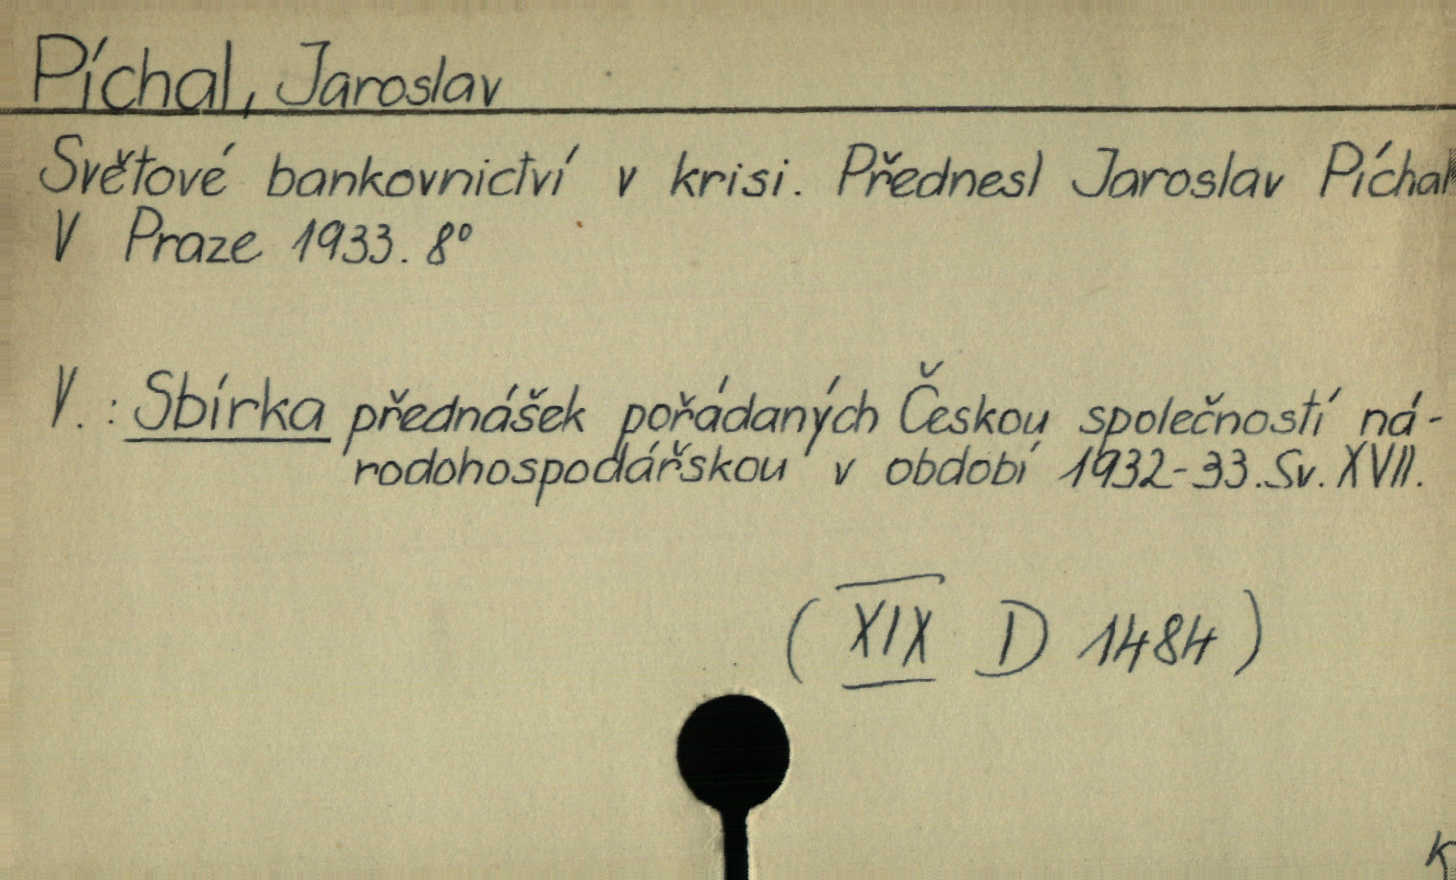 Píchal, Jaroslav
Světové bankovnictví v krisi. Přednesl Jaroslav Píchal
V Praze 1933. 8°
V.: Sbírka přednášek pořádaných Českou společností ná-
rodohospodářskou v období 1932-33. Sv. XVII.
( XIX D 1484 )